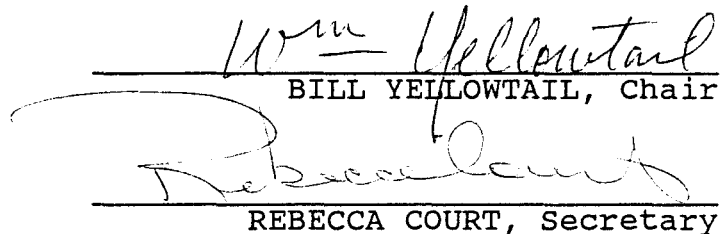 Wm Yellowtail
BILL YELLOWTAIL, Chair
Rebecca Court
REBECCA COURT, Secretary